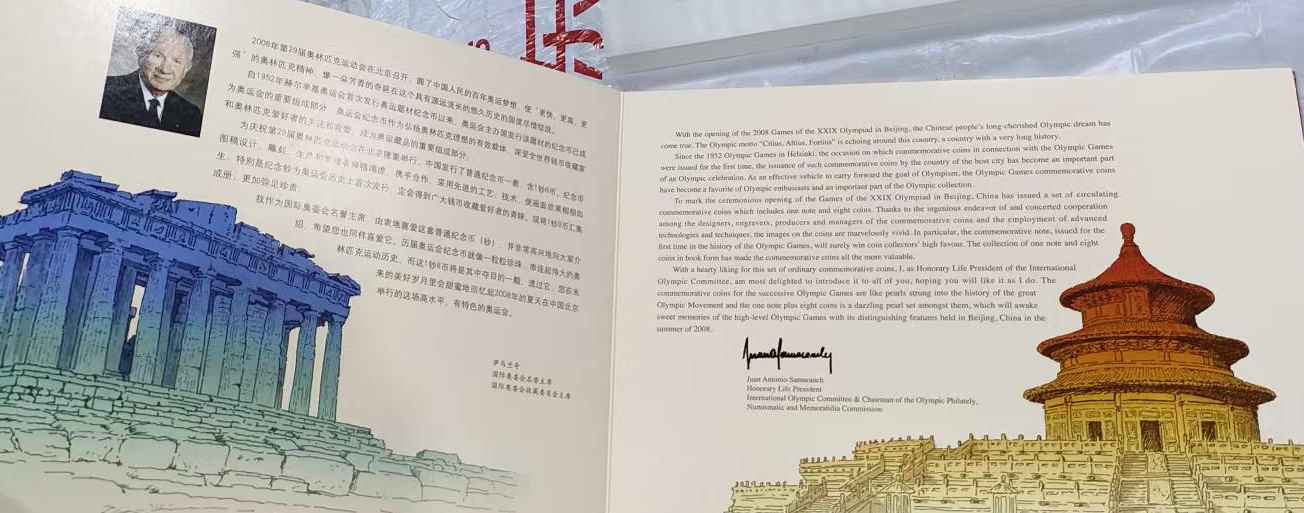 2008年第29届奥林匹克运动会在北京召开，圆了中国人民的百年奥运梦想，使“更快、更高、更
强”的奥林匹克精神，像一朵芳香的奇葩在这个具有源远流长的悠久历史的国度尽情绽放。
自1952年赫尔辛基奥运会首次发行奥运题材纪念币以来，奥运会主办国发行该题材的纪念币已成
为奥运会的重要组成部分。奥运会纪念币作为弘扬奥林匹克理想的有效载体，深受全世界钱币收藏家
和奥林匹克爱好者的关注和喜爱，成为奥运藏品的重要组成部分。
为庆祝第29届奥林匹克运动会在北京隆重举行，中国发行了普通纪念币一套，含1钞8币。纪念币
图稿设计、雕刻、生产和管理者殚精竭虑，携手合作，采用先进的工艺、技术，使画面效果栩栩如
生，特别是纪念钞为奥运会历史上首次发行，定会得到广大钱币收藏爱好者的青睐。现将1钞8币汇集
成册，更加弥足珍贵。
我作为国际奥委会名誉主席，由衷地喜爱这套普通纪念币（钞），并非常高兴地向大家介
绍，希望您也同样喜爱它。历届奥运会纪念币就像一粒粒珍珠，串连起伟大的奥
林匹克运动历史，而这1钞8币将是其中夺目的一颗，透过它，您在未
来的美好岁月里会甜蜜地回忆起2008年的夏天在中国北京
举行的这场高水平、有特色的奥运会。
萨马兰奇
国际奥委会名誉主席
国际奥委会收藏委员会主席
With the opening of the 2008 Games of the XXIX Olympiad in Beijing, the Chinese people's long-cherished Olympic dream has
come true. The Olympic motto "Citius, Altius, Fortius" is echoing around this country, a country with a very long history.
Since the 1952 Olympic Games in Helsinki, the occasion on which commemorative coins in connection with the Olympic Games
were issued for the first time, the issuance of such commemorative coins by the country of the host city has become an important part
of an Olympic celebration. As an effective vehicle to carry forward the goal of Olympism, the Olympic Games commemorative coins
have become a favorite of Olympic enthusiasts and an important part of the Olympic collection.
To mark the ceremonious opening of the Games of the XXIX Olympiad in Beijing, China has issued a set of circulating
commemorative coins which includes one note and eight coins. Thanks to the ingenious endeavor of and concerted cooperation
among the designers, engravers, producers and managers of the commemorative coins and the employment of advanced
technologies and techniques, the images on the coins are marvelously vivid. In particular, the commemorative note, issued for the
first time in the history of the Olympic Games, will surely win coin collectors' high favour. The collection of one note and eight
coins in book form has made the commemorative coins all the more valuable.
With a hearty liking for this set of ordinary commemorative coins, I, as Honorary Life President of the International
Olympic Committee, am most delighted to introduce it to all of you, hoping you will like it as I do. The
commemorative coins for the successive Olympic Games are like pearls strung into the history of the great
Olympic Movement and the one note plus eight coins is a dazzling pearl set amongst them, which will awake
sweet memories of the high-level Olympic Games with its distinguishing features held in Beijing, China in the
summer of 2008.
Juan Antonio Samaranch
Honorary Life President
International Olympic Committee & Chairman of the Olympic Philately,
Numismatic and Memorabilia Commission